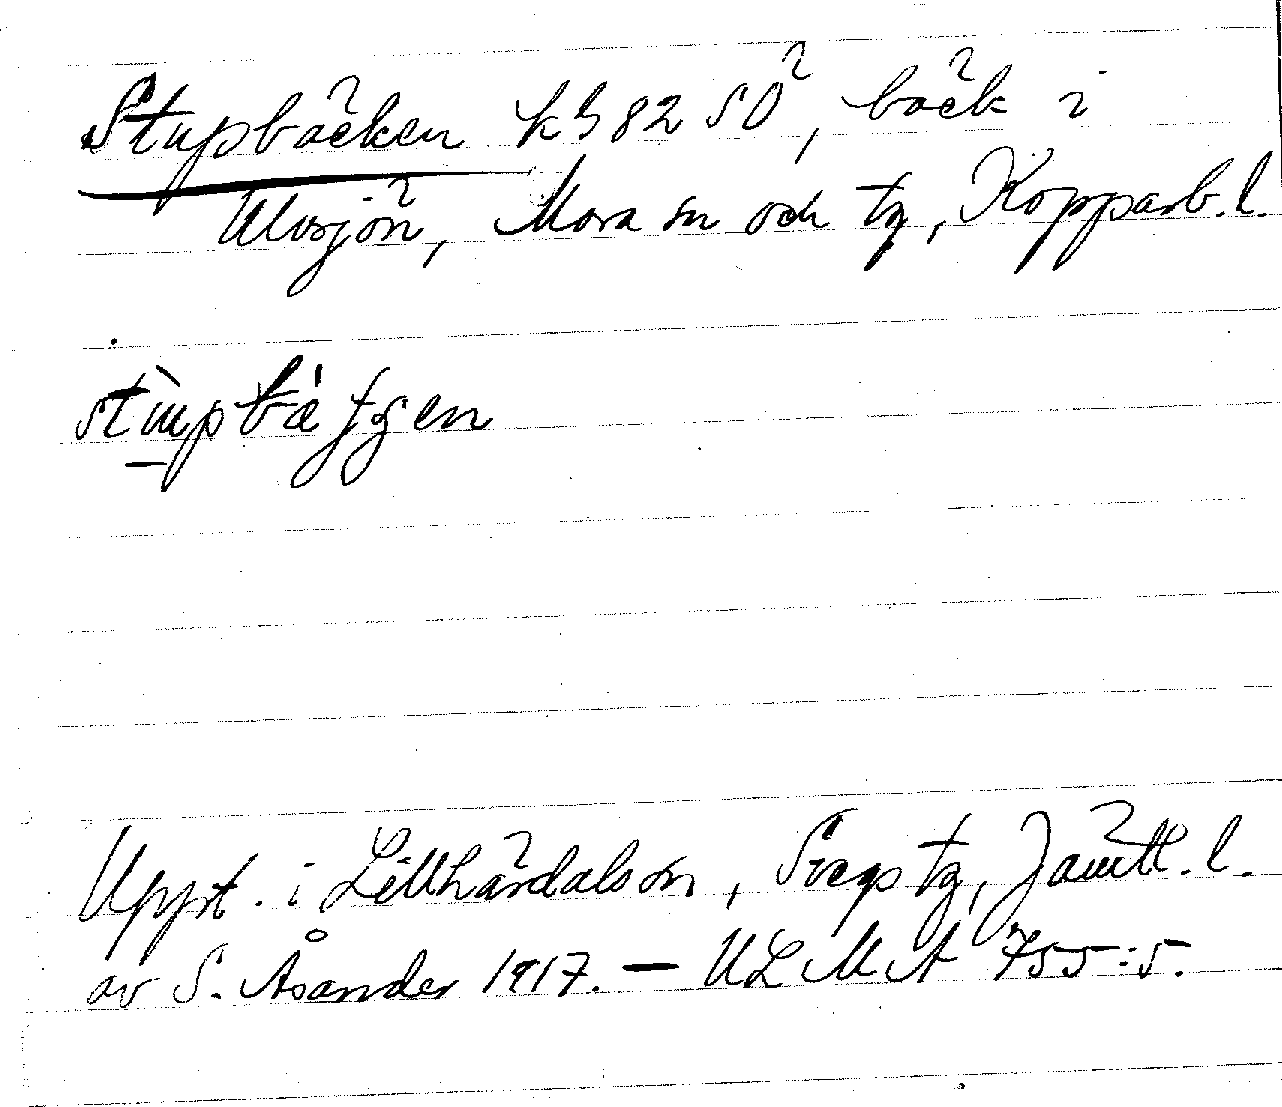 Stupbäcken kb 82 SO, bäck i
Ulvsjön, Mora sn och tg, Kopparb. l
stupbäʃgen
Uppt. i Lillhärdals sn, Svegs tg, Jämtl. l.
av S. Åsander 1917. — ULMA 755:5.